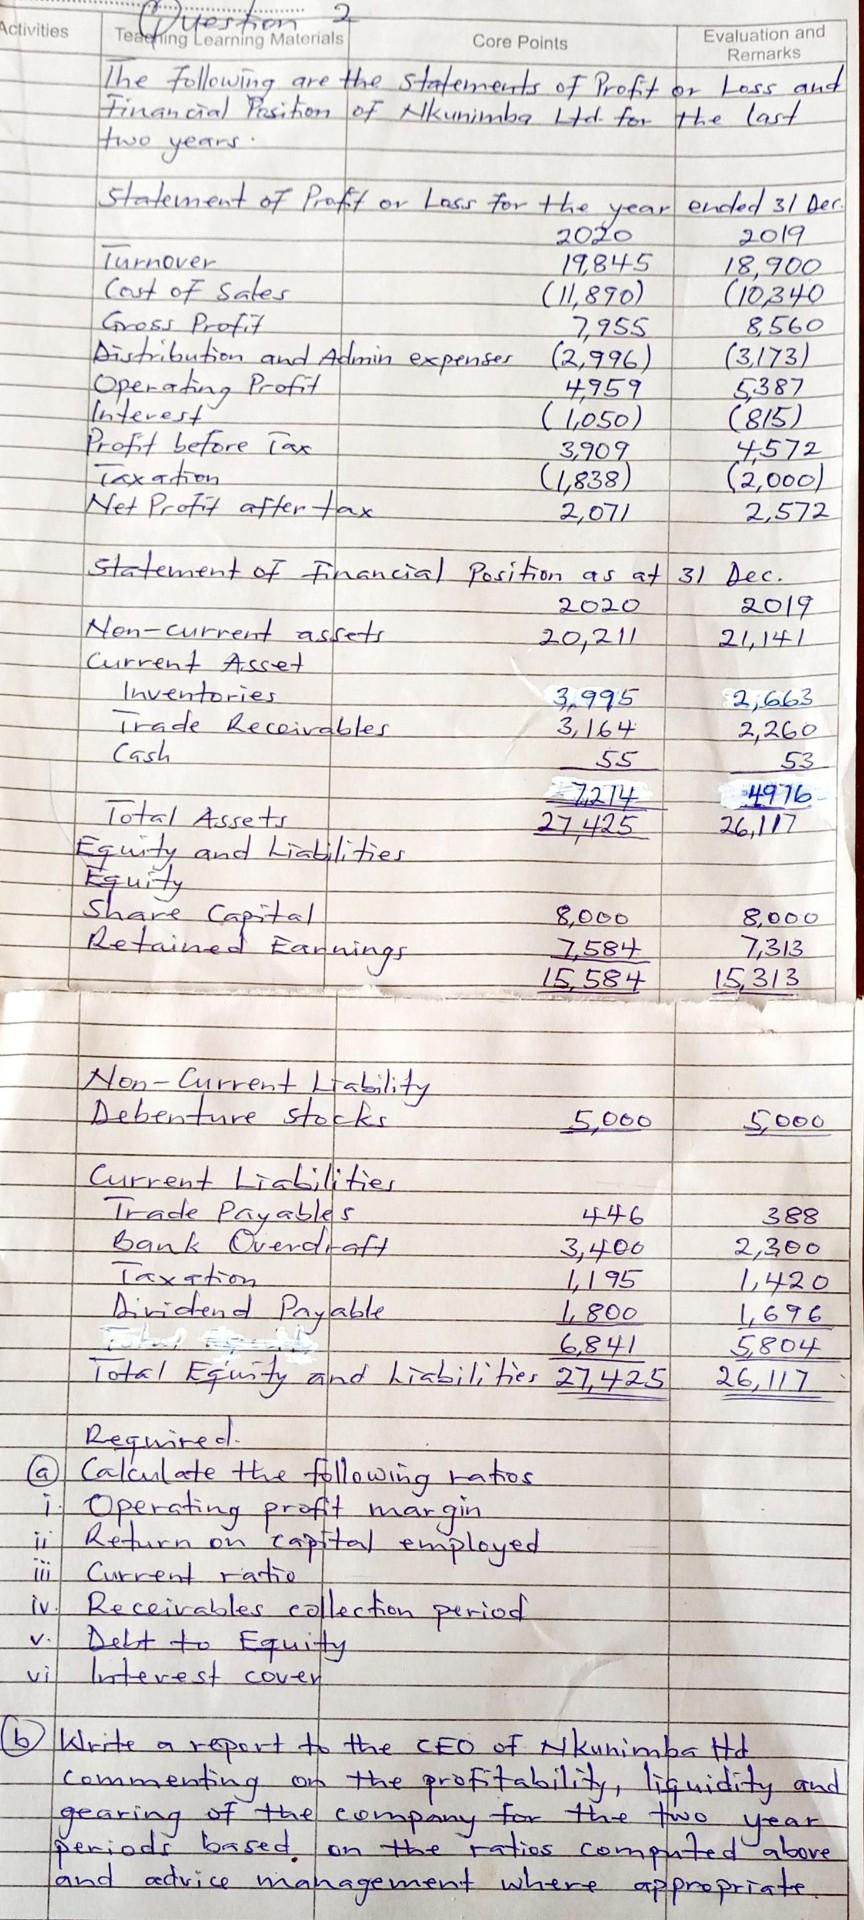 Question 2
Activities Teaching Learning Materials Core Points Evaluation and Remarks
The following are the statements of Profit or Loss and
Financial Position of Nkunimba Ltd. for the last
two years.
Statement of Profit or Loss for the year ended 31 Dec.
2020 2019
Turnover 19,845 18,900
Cost of Sales (11,890) (10,340
Gross Profit 7,955 8,560
Distribution and Admin expenses (2,996) (3,173)
Operating Profit 4,959 5,387
Interest (1,050) (815)
Profit before Tax 3,909 4,572
Taxation (1,838) (2,000)
Net Profit after tax 2,071 2,572
Statement of Financial Position as at 31 Dec.
2020 2019
Non-current assets 20,211 21,141
Current Asset
Inventories 3,995 2,663
Trade Receivables 3,164 2,260
Cash 55 53
7,214 4976
Total Assets 27,425 26,117
Equity and Liabilities
Equity
Share Capital 8,000 8,000
Retained Earnings 7,584 7,313
15,584 15,313
Non-Current Liability
Debenture stocks 5,000 5,000
Current Liabilities
Trade Payables 446 388
Bank Overdraft 3,400 2,300
Taxation 1,195 1,420
Dividend Payable 1,800 1,696
6,841 5,804
Total Equity and Liabilities 27,425 26,117
Required.
(a) Calculate the following ratios
i. Operating profit margin
ii Return on capital employed
iii Current ratio
iv. Receivables collection period
v. Debt to Equity
vi Interest cover
(b) Write a report to the CEO of Nkunimba Ltd
commenting on the profitability, liquidity and
gearing of the company for the two year
periods based on the ratios computed above
and advice management where appropriate.